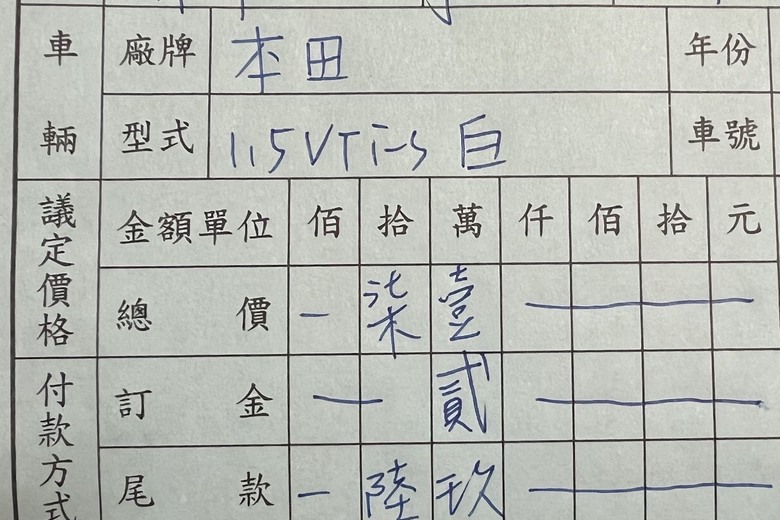 車輛 廠牌 本田 年份
型式 1.5VTi-S 白 車號
議定價格 金額單位 佰 拾 萬 仟 佰 拾 元
總價 — 柒 壹 —
付款方式 訂金 — 貳 —
尾款 — 陸 玖 —